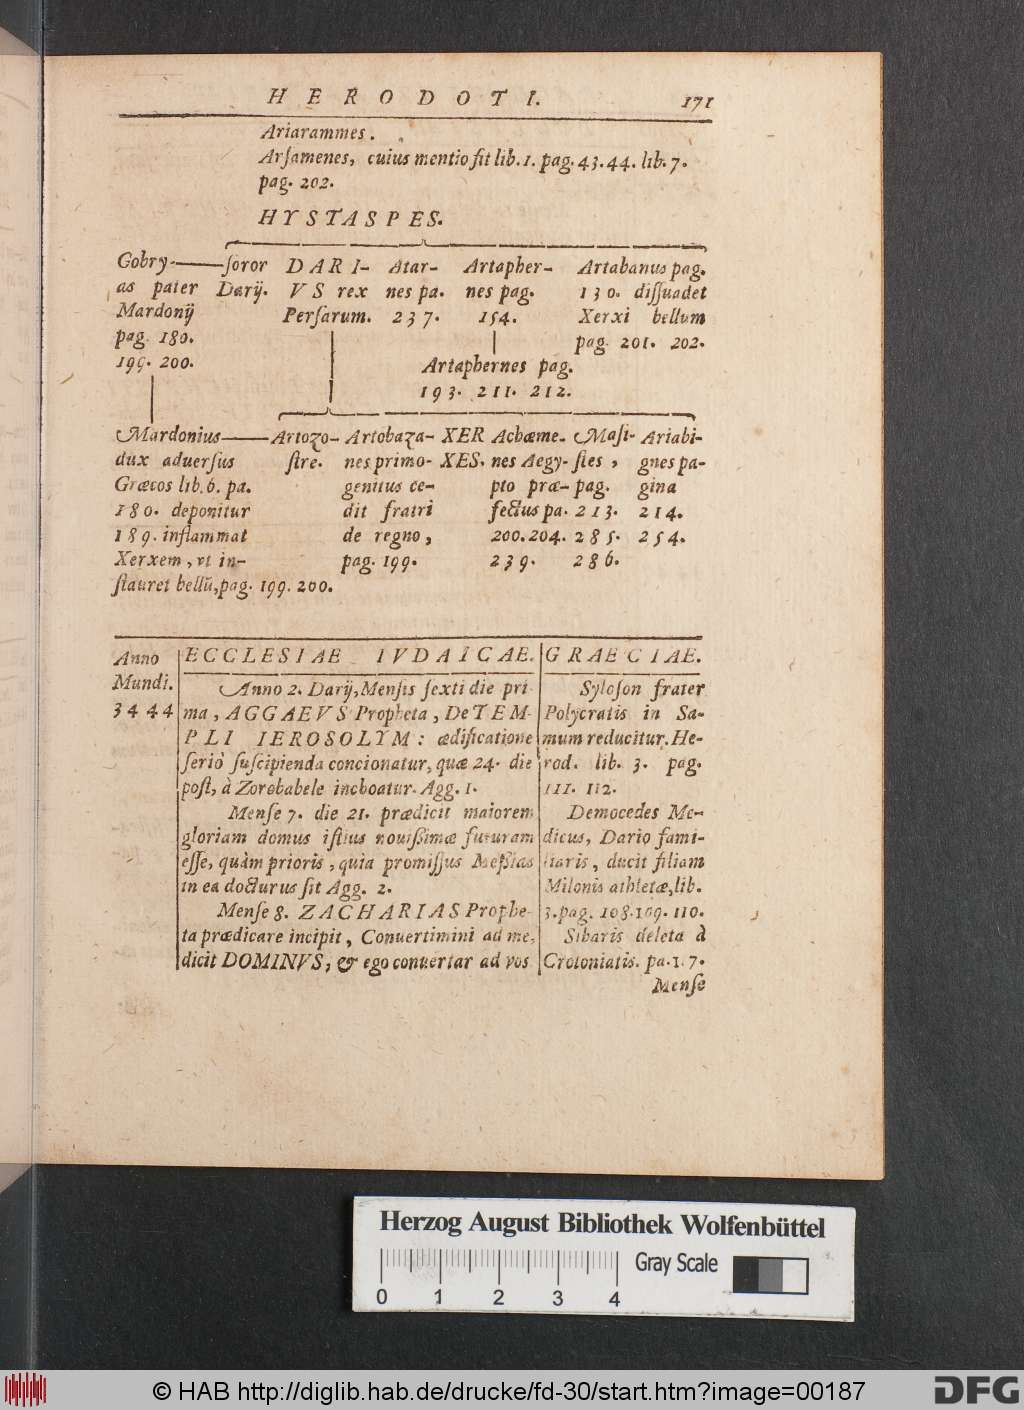 HERODOTI. 171
Ariarammes.
Arſamenes, cuius mentio fit lib. 1. pag. 43. 44. lib. 7.
pag. 202.
HYSTASPES.
Gobry-
as pater
Mardonij
pag. 180.
199. 200.
ſoror
Darij.
DARI-
VS rex
Perſarum.
Atar-
nes pa.
237.
Artapher-
nes pag.
154.
Artabanus pag.
130. diſſuadet
Xerxi bellum
pag. 201. 202.
Artaphernes pag.
193. 211. 212.
Mardonius
dux aduerſus
Græcos lib. 6. pa.
180. deponitur
189. inflammat
Xerxem, vt in-
ſtauret bellū, pag. 199. 200.
Artozo-
ſtre.
Artobaza-
nes primo-
genitus ce-
dit fratri
de regno,
pag. 199.
XER
XES.
Achæme-
nes Aegy-
pto præ-
fectus pa.
200. 204.
239.
Maſi-
ſtes,
pag.
213.
285.
286.
Ariabi-
gnes pa-
gina
214.
254.
Anno
Mundi.
3444
ECCLESIAE IVDAICAE.
Anno 2. Darij, Menſis ſexti die pri-
ma, AGGAEVS Propheta, De TEM-
PLI IEROSOLYM: ædificatione
ſeriò ſuſcipienda concionatur, quæ 24. die
poſt, à Zorobabele inchoatur. Agg. 1.
Menſe 7. die 21. prædicit maiorem
gloriam domus iſtius nouiſſimæ futuram
eſſe, quàm prioris, quia promiſſus Meſſias
in ea docturus ſit Agg. 2.
Menſe 8. ZACHARIAS Prophe-
ta prædicare incipit, Conuertimini ad me,
dicit DOMINVS, & ego conuertar ad vos
GRAECIAE.
Syloſon frater
Polycratis in Sa-
mum reducitur. He-
rod. lib. 3. pag.
111. 112.
Democedes Me-
dicus, Dario fami-
liaris, ducit filiam
Milonis athletæ, lib.
3. pag. 108. 109. 110.
Sibaris deleta à
Crotoniatis. pa.
Menſe
Herzog August Bibliothek Wolfenbüttel
Gray Scale
0 1 2 3 4
© HAB http://diglib.hab.de/drucke/fd-30/start.htm?image=00187
DFG